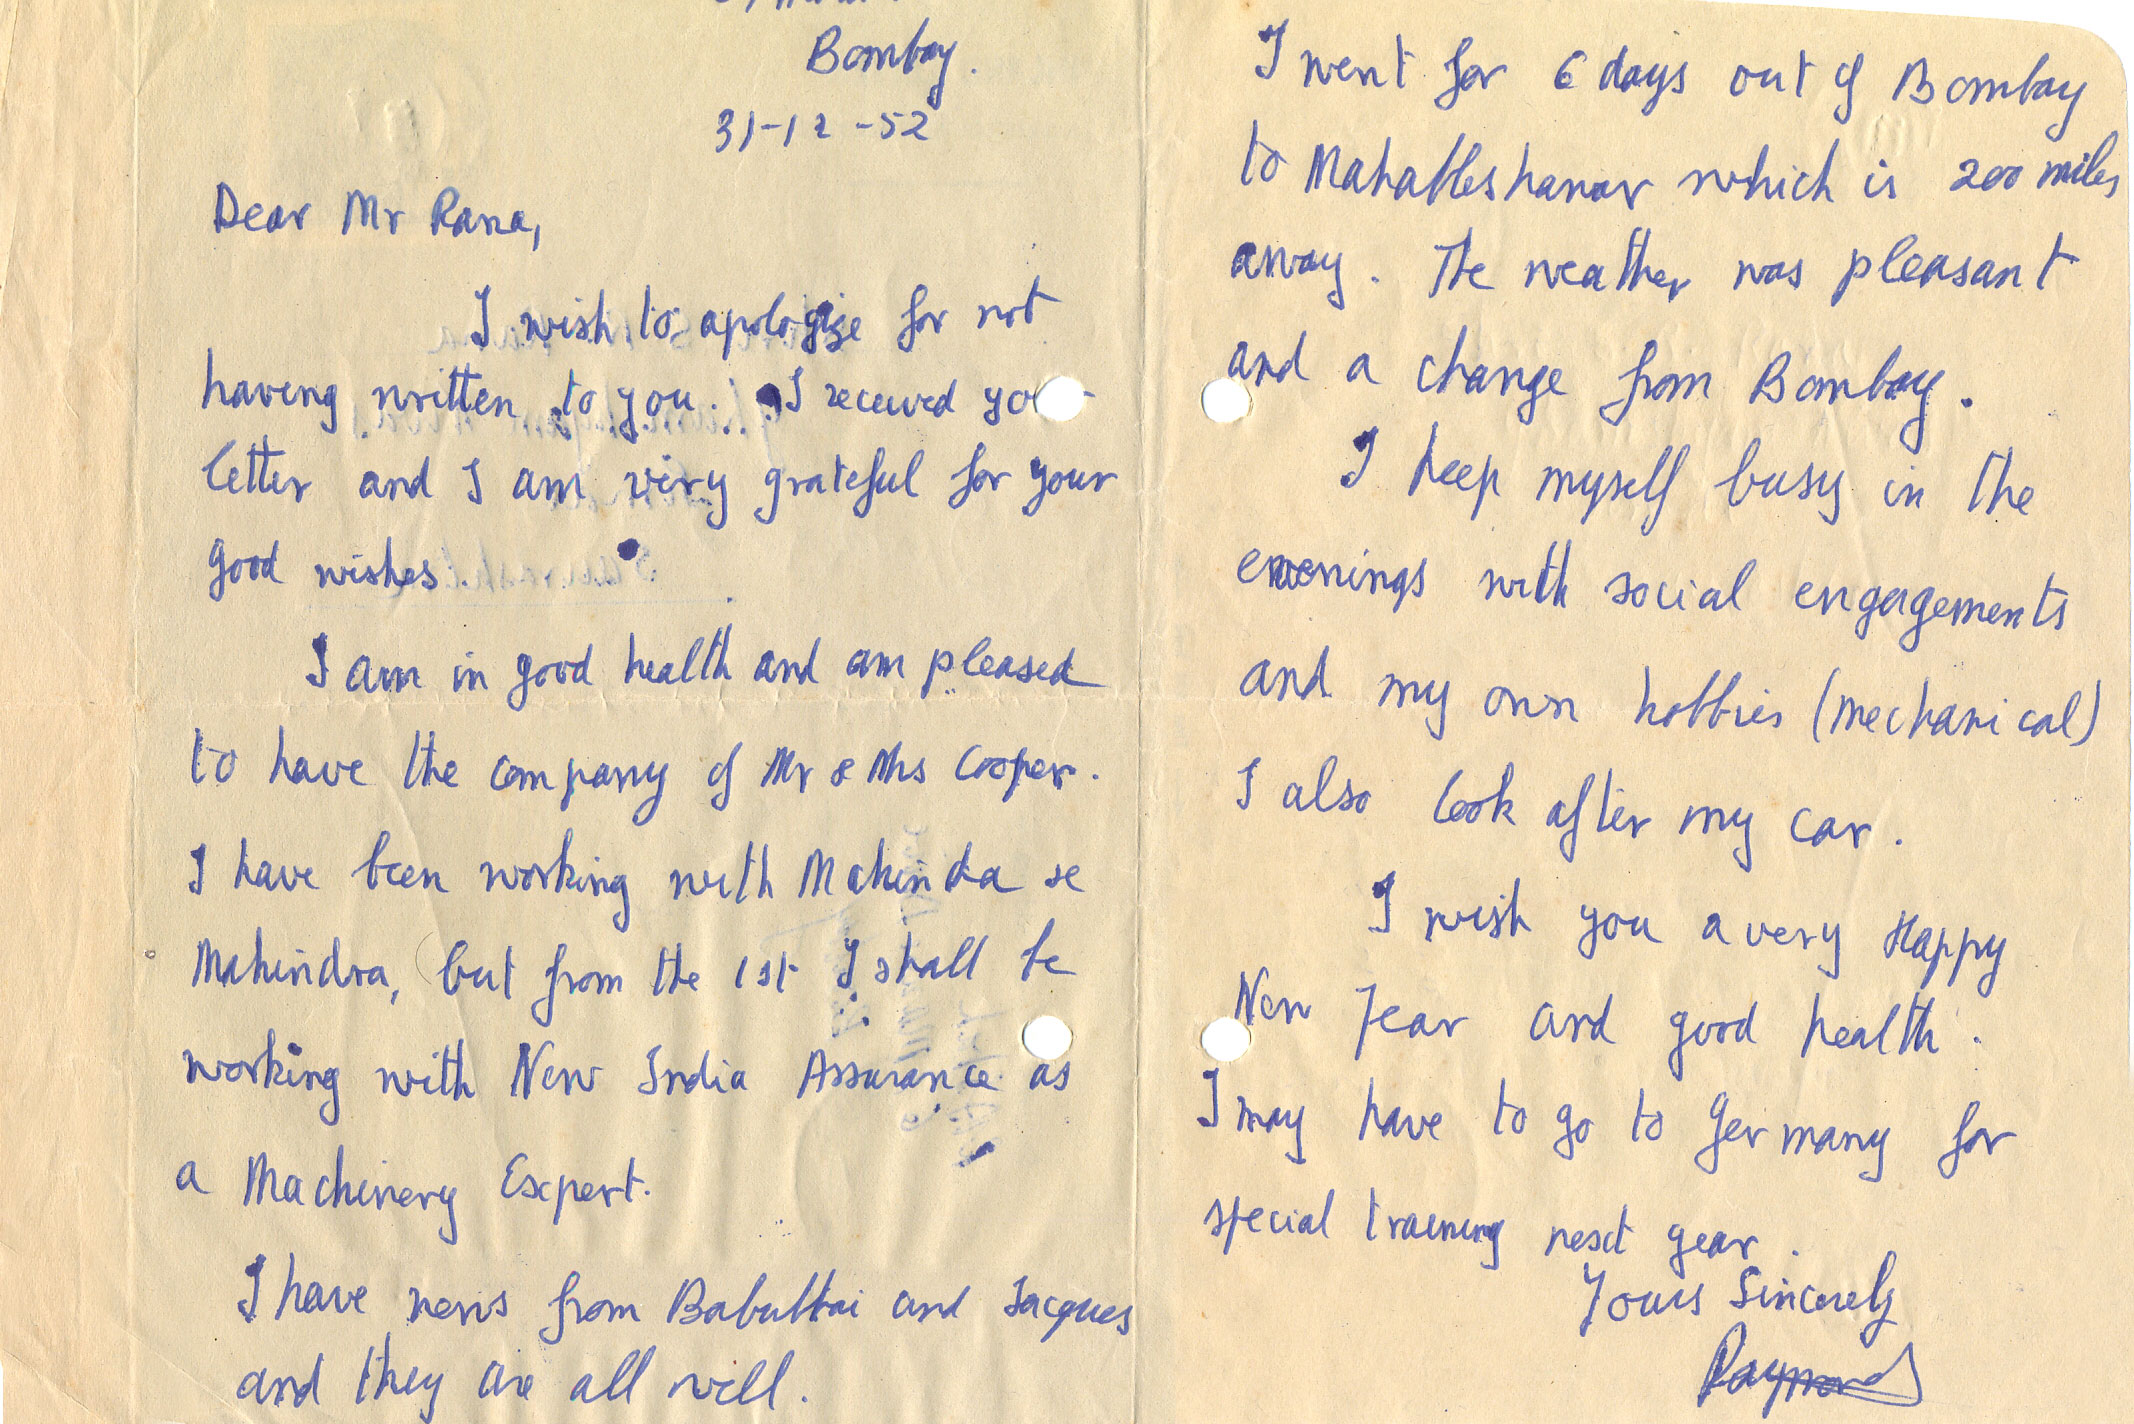 Bombay.
31-12-52
Dear Mr Rana,
I wish to apologize for not
having written to you. I received
letter and I am very grateful for your
good wishes.
I am in good health and am pleased
to have the company of Mr & Mrs Cooper.
I have been working with Mahindra &
Mahindra, but from the 1st I shall be
working with New India Assurance as
a Machinery Expert.
I have news from Babubhai and Jacques
and they are all well.
I went for 6 days out of Bombay
to Mahableshawar which is 200 miles
away. The weather was pleasant
and a change from Bombay.
I keep myself busy in the
evenings with social engagements
and my own hobbies (mechanical)
I also look after my car.
I wish you a very Happy
New Year and good health.
I may have to go to Germany for
special training next year.
Yours Sincerely
Raymond